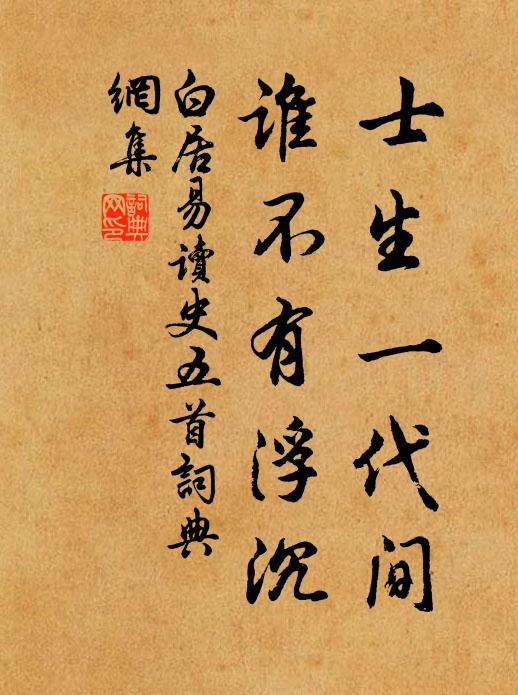 士生一代间
谁不有浮沉
白居易读史五首词典
網集
词典网印